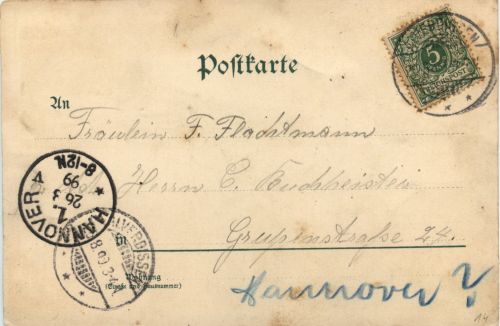 Postkarte
5
An
Fräulein F. Flachtmann
Herrn E. Buchheister
in
Grupenstraße 24.
Wohnung
(Straße und Hausnummer)
Hannover
HANNOVER
1.
26 3
99
8-12N.
14